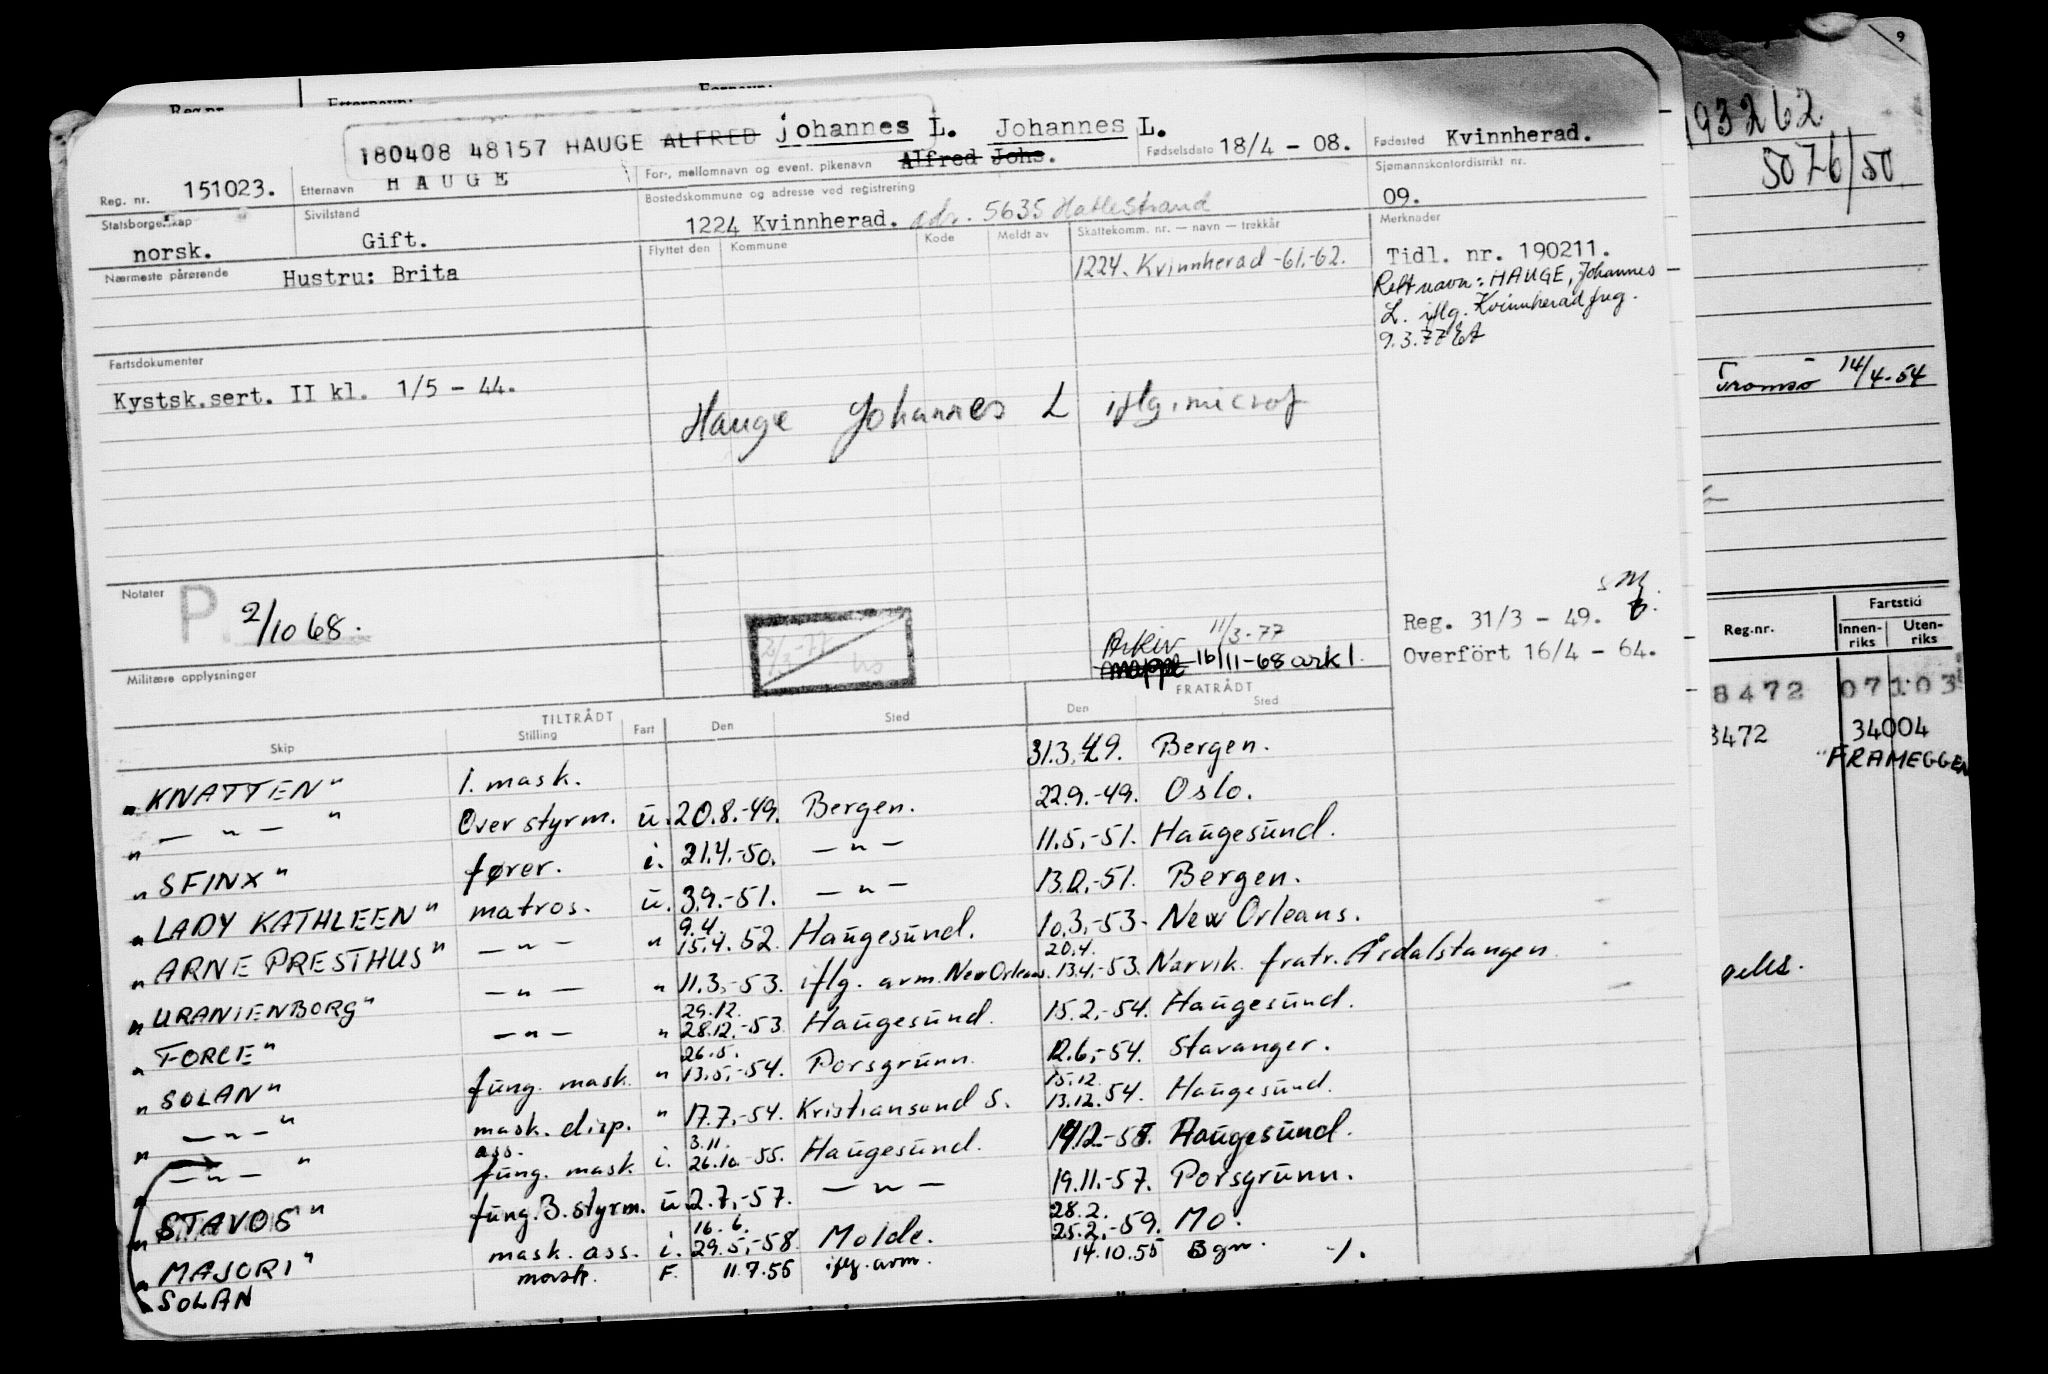 180408 48157 HAUGE ALFRED Johannes L. Johannes L.
Reg. nr. 151023. Etternavn HAUGE For-, mellomnavn og event. pikenavn Alfred Johs. Fødselsdato 18/4 - 08. Fødested Kvinnherad.
Statsborgerskap norsk. Sivilstand Gift. Bostedskommune og adresse ved registrering 1224 Kvinnherad. adr. 5635 Hatlestrand Sjømannskontordistrikt nr. 09.
Nærmeste pårørende Hustru: Brita
Flyttet den Kommune Kode Meldt av Skattekomm. nr. — navn — trekkår
1224. Kvinnherad -61.-62.
Merknader
Tidl. nr. 190211.
Rett navn: HAUGE, Johannes
L. iflg. Kvinnherad freg.
9.3.77
Fartsdokumenter
Kystsk.sert. II kl. 1/5 - 44.
Hauge Johannes L iflg. microf
Notater
P. 2/10 68.
Arkiv 11/3-77
mappe 16/11-68 ark 1.
Reg. 31/3 - 49.
Overført 16/4 - 64.
Militære opplysninger
TILTRÅDT FRATRÅDT
Skip Stilling Fart Den Sted Den Sted
"KNATTEN" 1. mask. 31.3.49. Bergen.
" — " — " Over styrm. u. 20.8.-49. Bergen. 22.9.-49. Oslo.
"SFINX" fører. i. 21.4.-50. — " — 11.5.-51. Haugesund.
"LADY KATHLEEN" matros. u. 3.9.-51. — " — 13.12.-51. Bergen.
"ARNE PRESTHUS" — " — " 9.4. 15.4. 52. Haugesund. 10.3.-53. New Orleans.
"URANIENBORG" — " — " 11.3.-53. iflg. avm. New Orleans. 20.4. 13.4.-53. Narvik. fratr. Årdalstangen
"FORCE" — " — " 29.12. 28.12.-53. Haugesund. 15.2.-54. Haugesund.
"SOLAN" fung. mask. " 26.5. 13.5.-54. Porsgrunn. 12.6.-54. Stavanger.
" — " — " mask. disp. " 17.7.-54. Kristiansand S. 15.12. 13.12.54. Haugesund.
" — " — " ass. fung. mask. i. 3.11. 26.10.-55. Haugesund. Haugesund.
"STAVOS" fung. 3. styrm. u. 2.7.-57. — " — 19.11.-57. Porsgrunn.
"MAJORI" mask. ass. i. 16.6. 29.5.-58. Molde. 28.2. 25.2.-59. Mo.
SOLAN mask. F. 11.7.55 iflg. avm. 14.10.55 Bgn. -/.
9
193262
5076/50
Tromsø 14/4-54
Reg.nr. Fartstid
Innenriks Utenriks
8472 07103
3472 34004
"FRAMEGGEN